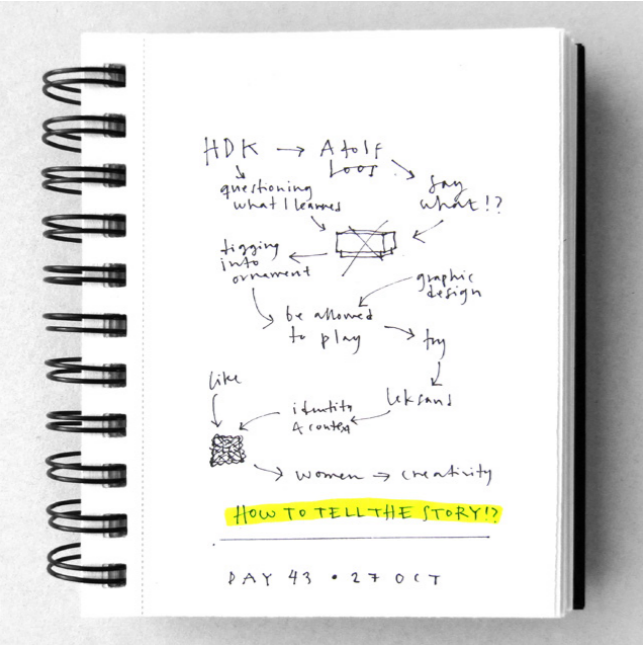 HDK → Adolf
Loos
questioning
what I learned
say
what!?
digging
into
ornament
graphic
design
be allowed
to play
toy
like
identity
& context
leksans
women → creativity
HOW TO TELL THE STORY!?
DAY 43 • 27 OCT